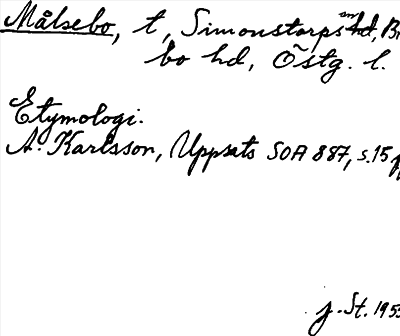 Målsebo, t, Simonstorps sn, Br
bo hd, Östg. l.
Etymologi.
A. Karlsson, Uppsats SOA 887, s. 15
J. St. 1955